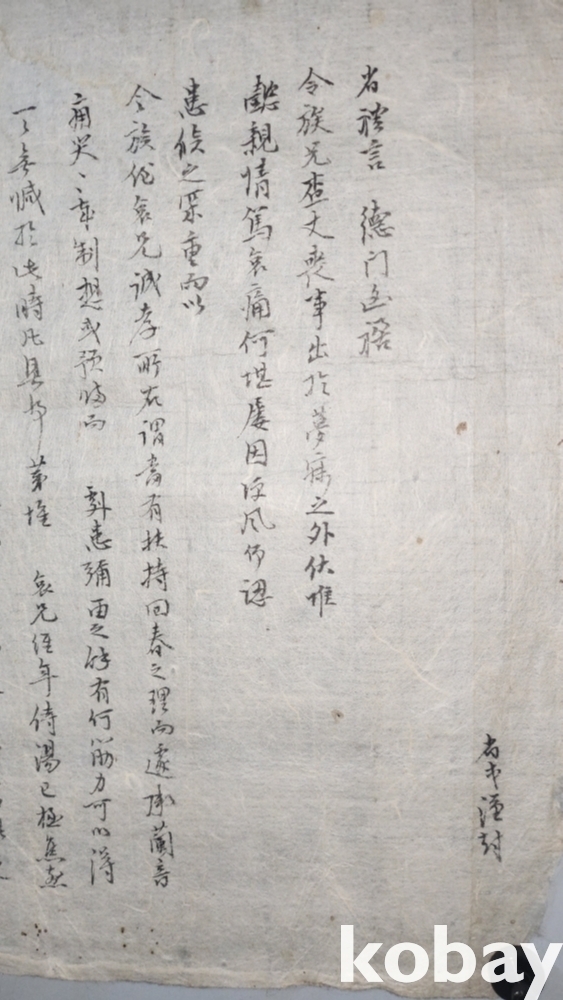 省式謹封
省禮言 德門凶禍
令族兄査丈喪事出於夢寐之外伏惟
懿親情篤哀痛何堪屢因便風仰認
患候之深重而以
令族侄哀兄誠孝所在謂書有扶持回春之理而遽承蘭音
痛哭痛哭年制想或預備而 劇患彌之餘有何筋力可以得
無憾於此時凡具耶 第惟 哀兄經年侍湯已極焦
kobay